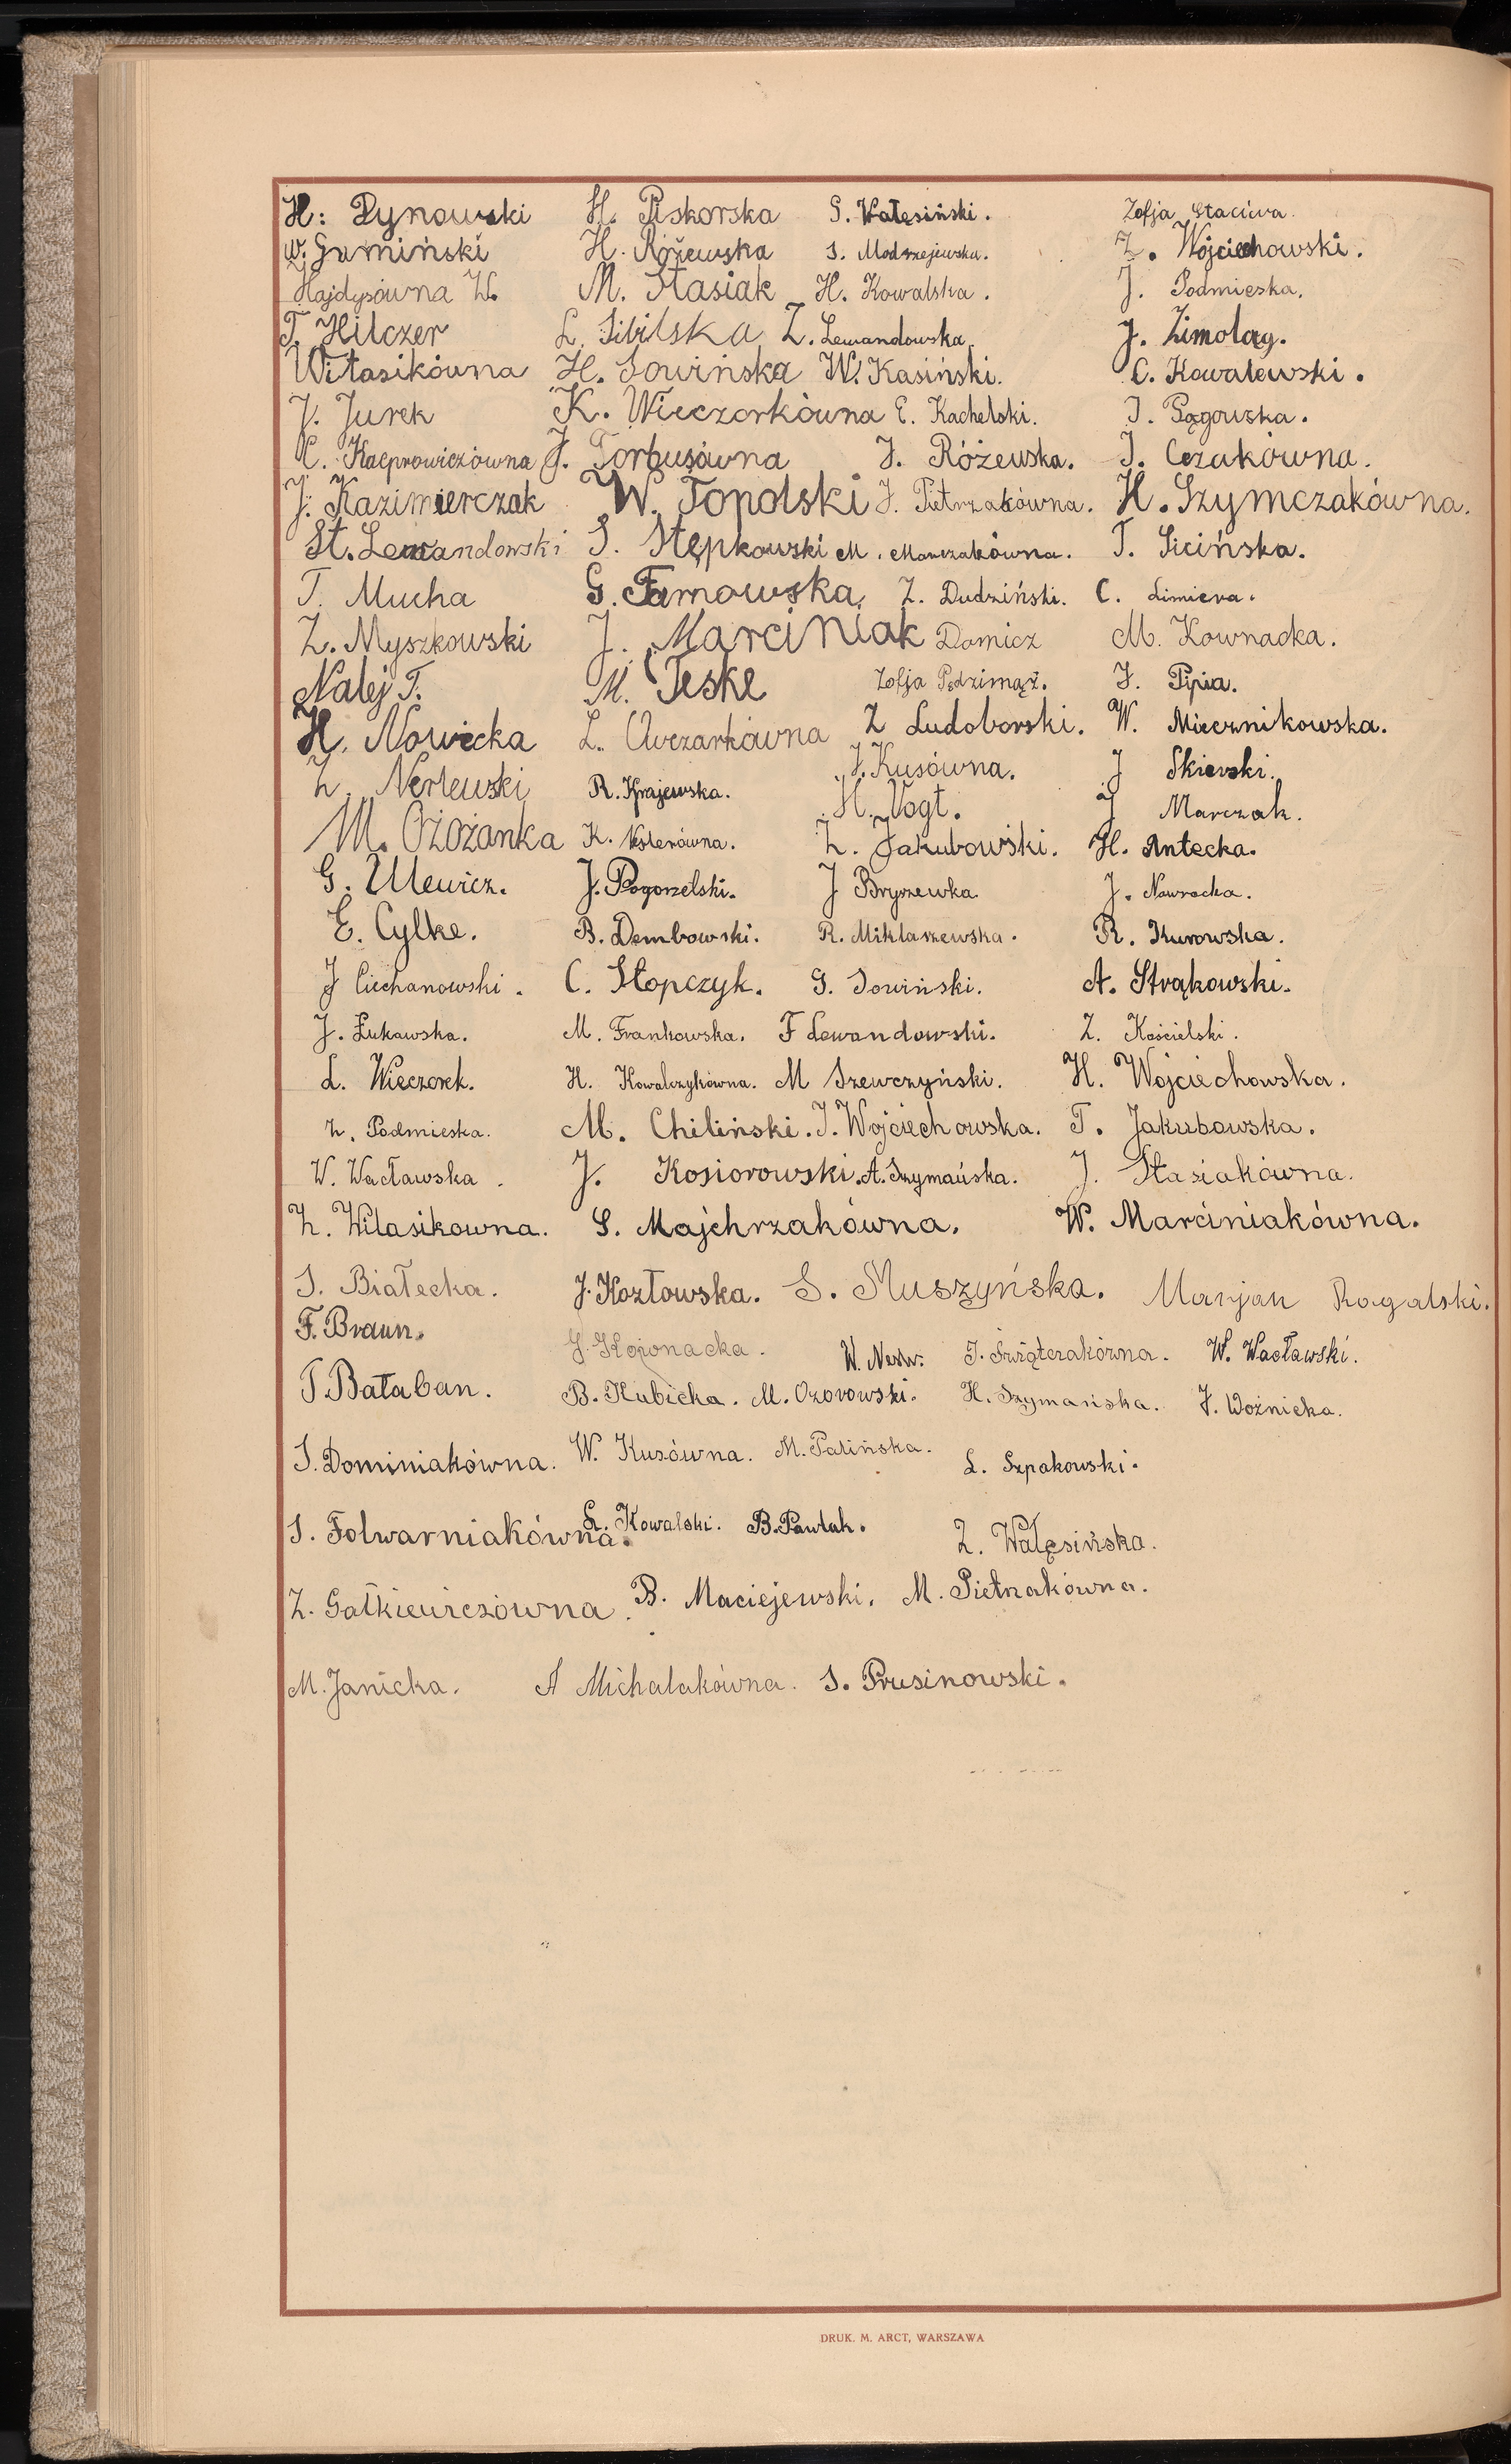 H. Dynowski H. Piskorska S. Wałęsiński. Zofja Staciwa.
W. Gumiński H. Różewska S. Modrzejewska. Z. Wojciechowski.
Hajdysówna W. M. Stasiak H. Kowalska. J. Podmieska.
T. Hilczer L. Sibilska Z. Lewandowska J. Zimoląg.
Witasikówna H. Sowińska W. Kasiński. C. Kowalewski.
J. Jurek K. Wieczorkówna E. Kachelski. J. Pągowska.
C. Kacprowiczówna J. Torbusówna J. Różewska. J. Czakówna.
J. Kazimierczak W. Topolski J. Pietrzakówna. H. Szymczakówna.
St. Lewandowski S. Stępkowski M. Marczakówna. T. Sicińska.
T. Mucha G. Tarnowska Z. Dudziński. C. Limiera.
Z. Myszkowski J. Marciniak Domicz M. Kownacka.
Nalej T. M. Teske Zofja Pędzimąż. J. Pipia.
H. Nowicka L. Owczarkówna Z Ludoborski. W. Miecznikowska.
Z. Nerlewski R. Krajewska. J. Kusówna. J Skierski.
M. Ożożanka K. Neslerówna. H. Vogt. J Marczak.
G. Ulewicz. J. Pogorzelski. Z. Jakubowski. H. Antecka.
E. Cylke. B. Dembowski. J Bryszewka. J. Nawrocka.
J Ciechanowski. C. Stopczyk. R. Miklaszewska. R. Kurowska.
J. Łukawska. M. Frankowska. G. Sowiński. A. Strąkowski.
L. Wieczorek. H. Kowalczykówna. F Lewandowski. Z. Kościelski.
Z. Podmieska. M. Chiliński. M Szewczyński. H. Wojciechowska.
W. Wacławska. J. Kosiorowski. J. Wojciechowska. T. Jakubowska.
Z. Witasikowna. S. Majchrzakówna. A. Szymańska. J. Stasiakówna.
W. Marciniakówna.
S. Białecka. J. Kozłowska. S. Muszyńska. Marjan Rogalski.
F. Braun. J. Kojonacka. W. Nerw. J. Świątczakówna. W. Wacławski.
T. Bałaban. B. Kubicka. M. Ozorowski. H. Szymańska. J. Woźnicka.
S. Dominiakówna. W. Kusówna. M. Palińska. L. Szpakowski.
S. Folwarniakówna. L. Kowalski. B. Pawlak. Z. Wałęsińska.
Z. Gałkiewiczówna. B. Maciejewski. M. Pietrzakówna.
M. Janicka. A Michalakówna. S. Prusinowski.
DRUK. M. ARCT, WARSZAWA